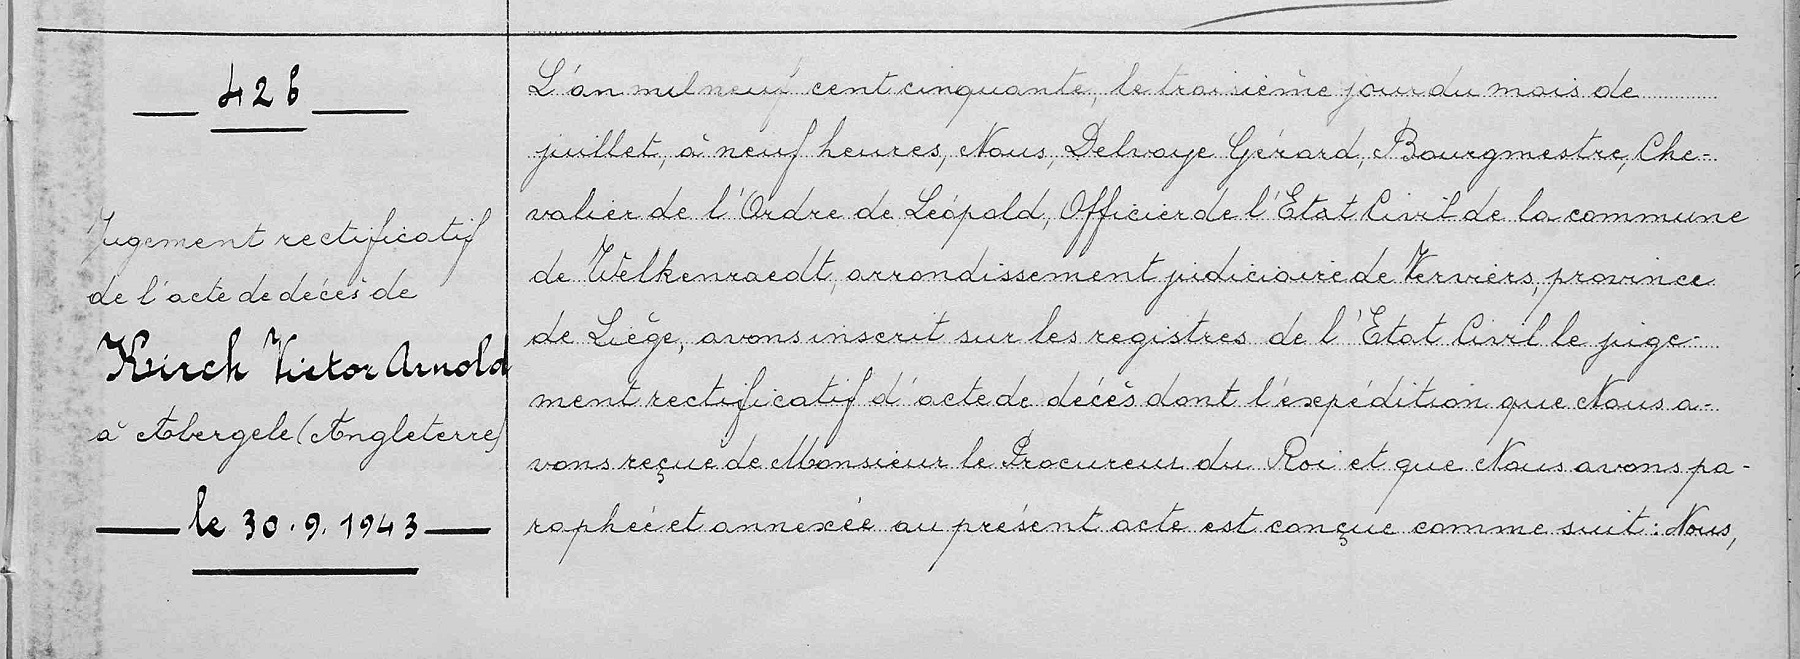 42 b
Jugement rectificatif
de l'acte de décès de
Kirch Victor Arnold
à Abergele (Angleterre)
le 30.9.1943
L'an mil neuf cent cinquante, le troisième jour du mois de
juillet, à neuf heures, Nous, Delvoye Gérard, Bourgmestre, Che-
valier de l'Ordre de Léopold, Officier de l'Etat Civil de la commune
de Welkenraedt, arrondissement judiciaire de Verviers, province
de Liège, avons inscrit sur les registres de l'Etat Civil le juge-
ment rectificatif d'acte de décès dont l'expédition que Nous a-
vons reçue de Monsieur le Procureur du Roi et que Nous avons pa-
raphée et annexée au présent acte est conçue comme suit : Nous,